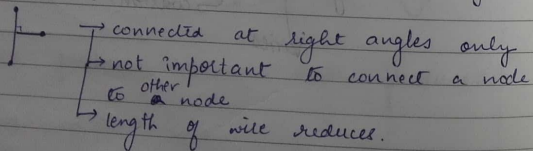 → connected at right angles only
→ not important to connect a node
to other node
→ length of wire reduces.